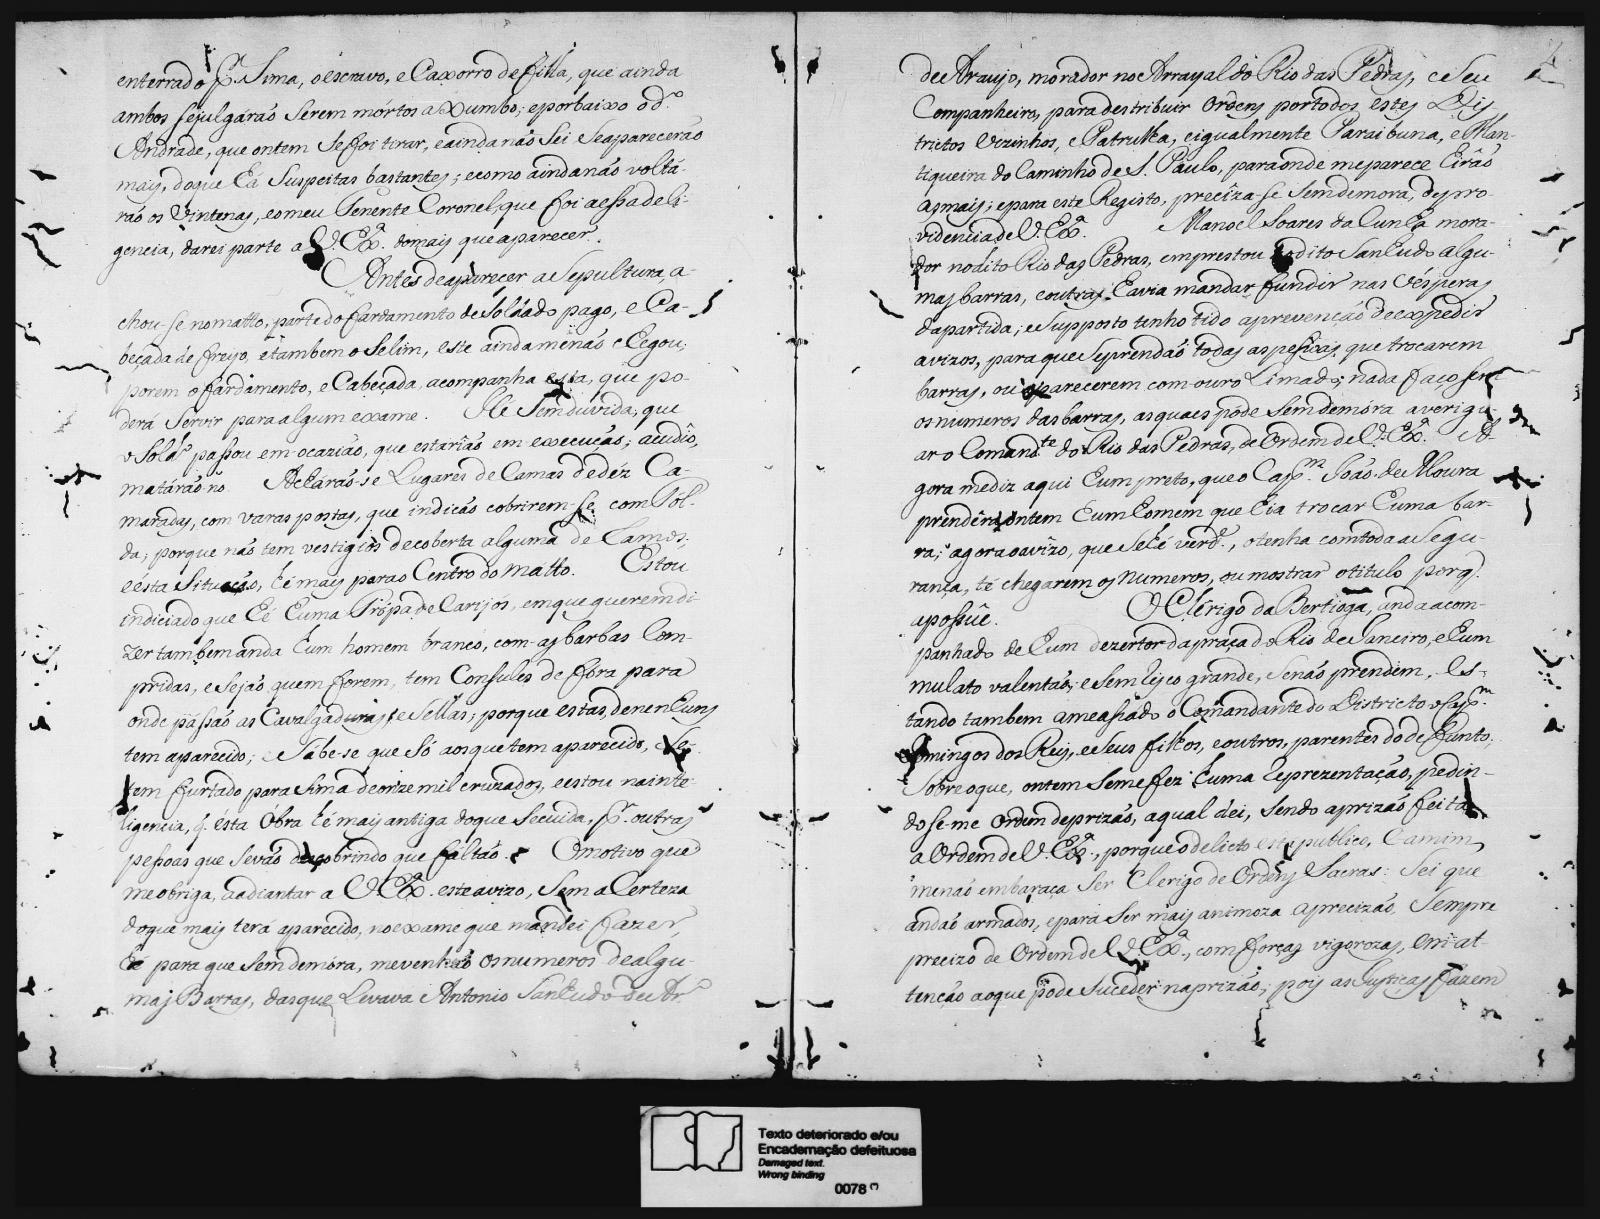 enterrado pr. Sima, o escravo, e Caxorro de filla, que ainda
ambos se julgárão Serem mórtos a Xumbo; e por baixo o d.o
Andrade, que ontem se foi tirar, e ainda não Sei Se aparecerão
mais, do que há Suspeitas bastantes; e como ainda não voltá-
rão os Vintenas, e o meu Tenente Coronel, que foi a essa deli-
gencia, darei parte a V. Exa. do mais que aparecer.
Antes de aparecer a Sepultura, a-
chou-se no matto, parte do fardamento de Soldado pago, e Ca-
beçada de freyo, e tambem o Selim, este ainda me não chegou;
porem o fardamento, e Cabeçada, acompanha esta, que po-
derá Servir para algum exame. He Sem duvida, que
o Soldo. passou em ocazião, que estarião em execução; acudio,
matárão-no. Achárão-se Lugares de Camas de déz Ca-
maradas, com varas postas, que indicão cobrirem-se, com Tol-
da; porque não tem vestigios de coberta alguma de Ramos;
e ésta Situação, hé mais para o Centro do matto. Estou
indiciado que hé huma Trópa de Carijós, em que querem di-
zer tambem anda hum homem branco, com as barbas Com-
pridas, e sejão quem forem, tem Consules de fóra para
onde pássão as Cavalgaduras, e Sellas; porque estas, de nenhuns
tem aparecido; e Sabe-se que Só aos que tem aparecido, Se
tem furtado para Sima de onze mil cruzados, e estou na inte-
ligencia, q. ésta Óbra hé mais antiga do que Se cuida, pr. outras
pessoas que se vão descobrindo que faltão. O motivo que
me obriga, a adiantar a V. Exa. este avizo, Sem a Certeza
do que mais terá aparecido, no exame que mandei fazer,
hé para que Sem demóra, me venhão os numeros de algu-
mas Barras, das que Levava Antonio Sanhudo de Ar.o
de Araujo, morador no Arrayal do Rio das Pedras, e Seu
Companheiro, para destribuir Ordens por todos estes Dis-
trictos Vezinhos, e Patrulha, e igualmente Paraibuna, e Man-
tiqueira do Caminho de S. Paulo, para onde me parece hirão
as mais; e para este Registo, preciza-se Sem demora, de pro-
videncia de V. Exa. Manoel Soares da Cunha mora-
dor no dito Rio das Pedras, emprestou ao dito Sanhudo algu-
mas barras, e outras havia mandar fundir nas vésperas
da partida; e Supposto tenho tido a prevenção de expedir
avizos, para que Se prendão todas as pessoas, que trocarem
barras, ou aparecerem com ouro Limado; nada faço sem
os numeros das barras, as quaes póde Sem demóra averigu-
ar o Comandte. do Rio das Pedras, de Ordem de V. Exa. A-
gora me diz aqui hum preto, que o Capm. João de Moura
prendêra ontem hum homem que hia trocar huma bar-
ra; agora o avizo, que Se hé verde., o tenha com toda a Segu-
rança, té chegarem os Numeros, ou mostrar o titulo porq.
a possûe. O Clérigo da Bertioga, anda acom-
panhado de hum dezertor da praça do Rio de Janeiro, e hum
mulato valentão; e Sem risco grande, Se não prendem, Es-
tando tambem ameasado o Comandante do Districto o Capm.
Domingos dos Reis, e Seus filhos, e outros, parentes do defunto;
Sobre o que, ontem Se me fez huma reprezentação, pedin-
do-se-me Ordem de prizão, a qual dei, Sendo a prizão feita
a Ordem de V. Exa., porque o delicto esta publico, e a mim
me não embaraça Ser Clerigo de Ordens Sacras: Sei que
andão armados, e para Ser mais animoza a precizão, Sempre
precizo de Ordem de V. Exa., com forças vigorozas, em at-
tenção ao que póde Suceder na prizão; pois as Justiças fazem
Texto deteriorado e/ou
Encadernação defeituosa
Damaged text.
Wrong binding
0078